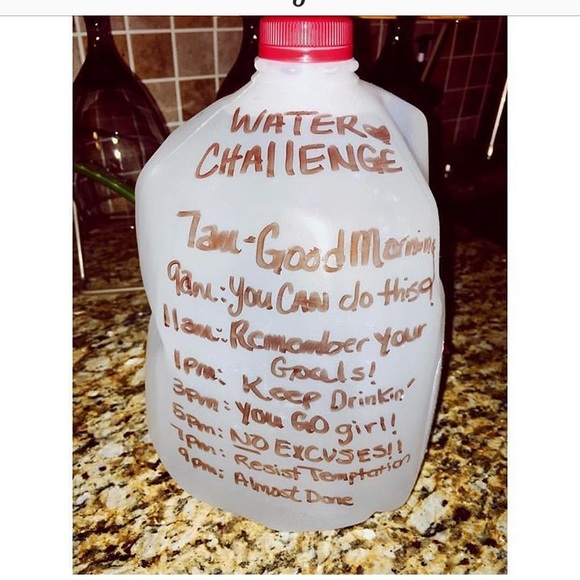 WATER
CHALLENGE
7am-Good Morning
9am: You CAN do this!
11am: Remember your
Goals!
1pm: Keep Drinkin'
3pm: you GO girl!!
5pm: NO EXCUSES!!
7pm: Resist Temptation
9pm: Almost Done